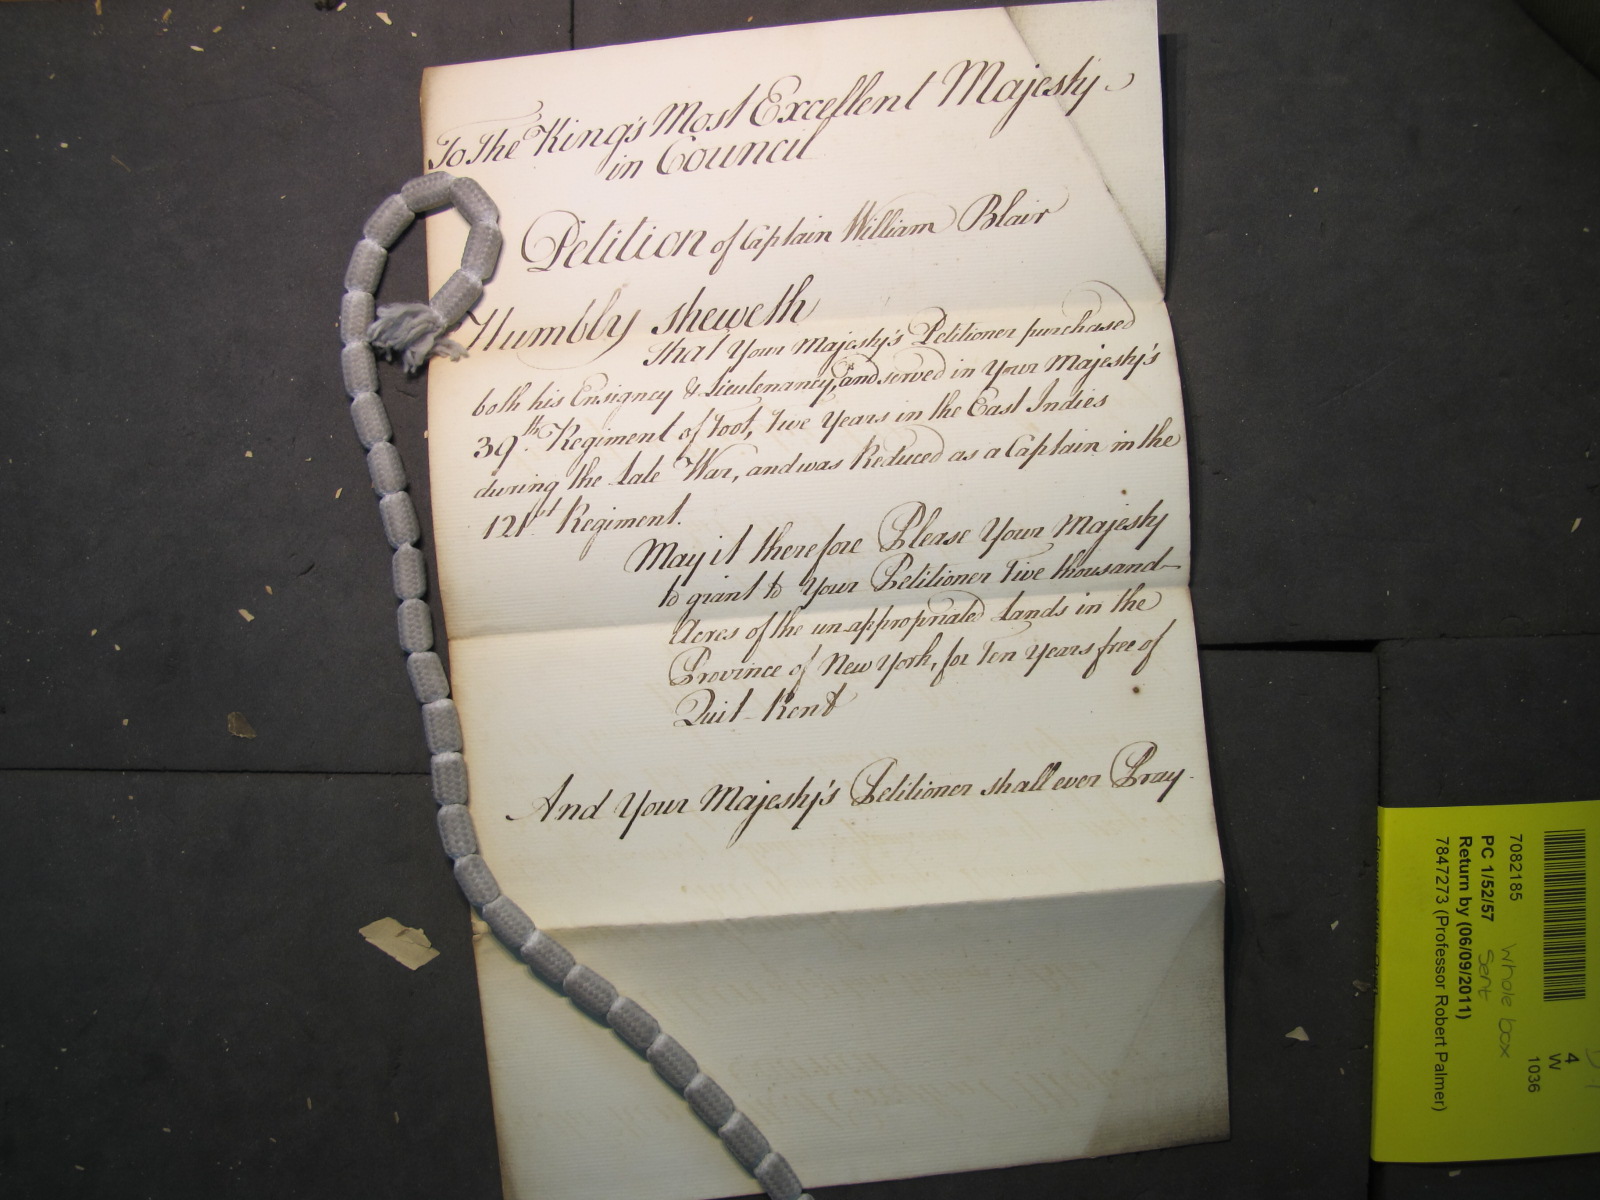 To The King's Most Excellent Majesty
in Council
Petition of Captain William Blair
Humbly sheweth
that Your Majesty's Petitioner purchased
both his Ensigncy & Lieutenancy, and served in Your Majesty's
39th. Regiment of Foot, Five Years in the East Indies
during the Late War, and was Reduced as a Captain in the
121st. Regiment.
May it therefore Please Your Majesty
to grant to Your Petitioner Five thousand
Acres of the unappropriated Lands in the
Province of New York, for Ten Years free of
Quit-Rent
And Your Majesty's Petitioner shall ever Pray.
7082185
PC 1/52/57
Return by (06/09/2011)
7847273 (Professor Robert Palmer)
whole box
sent
4
W
1036